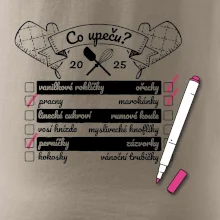 Co upeču?
2025
vanilkové rohlíčky ořechy
pracny marokánky
linecké cukroví rumové koule
vosí hnízda myslivecké knoflíky
perníčky zázvorky
kokosky vánoční trubičky